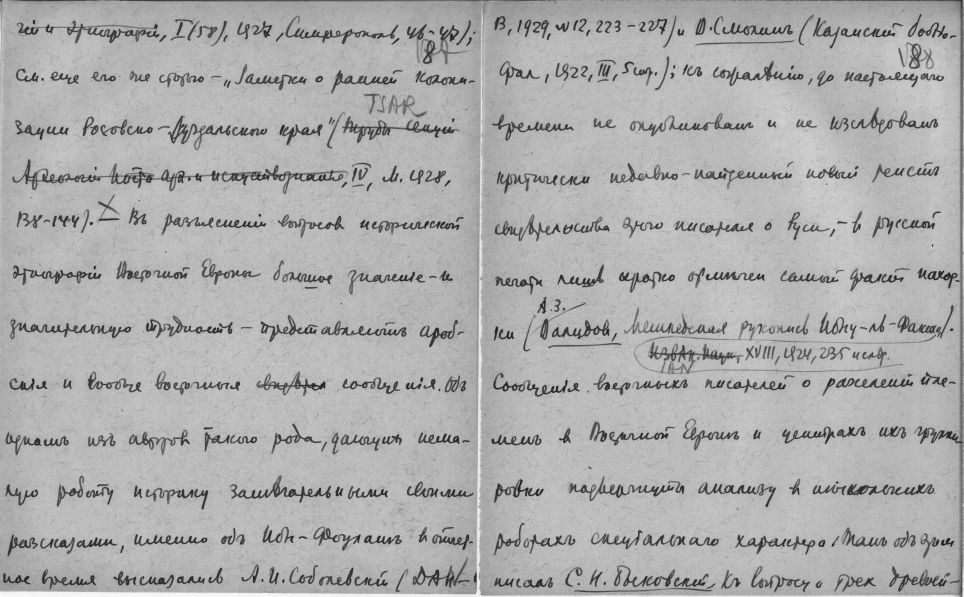 гіи и этнографіи, I (58), 1927, Симферополь, 46-47);
187
См. еще его же статью – „Заметки о ранней колони-
TSAR
зации Ростовско-Суздальского края" (Труды секціи
Археологіи Инст. арх. и искусствознанія, IV, М. 1928,
138-144). X Въ разъясненіи вопросов исторической
этнографіи Восточной Европы большое значеніе – и
значительную трудность – представляютъ араб-
скія и вообще восточныя свидѣтел сообщенія. Объ
одномъ изъ авторов такого рода, дающихъ нема-
лую работу историку замѣчательными своими
разсказами, именно объ Ибн-Фоцланѣ в послед-
нее время высказались А. И. Соболевскій (ДАН-
В, 1929, №12, 223-227) и В. Смолинъ (Казанский
188
1922, III, 5 стр.); къ сожалѣнію, до настоящаго
времени не опубликованъ и не изслѣдованъ
критически недавно-найденный новый текстъ
свидѣтельства этого писателя о Руси, – в русской
печати лишь кратко отмѣчен самый фактъ наход-
А.З.
ки (Валидов, Мешхедская рукопись Ибну-ль-Факиха).
Изв. Ак. Наук, XVIII, 1924, 235 и слѣд.
IAN
Сообщенія восточныхъ писателей о разселеніи пле-
менъ в Восточной Европѣ и центрахъ ихъ группи-
ровки подвергнуты анализу в нѣсколькихъ
работахъ спеціальнаго характера. Такъ объ этом
писалъ С. Н. Быковский, Къ вопросу о трех древней-